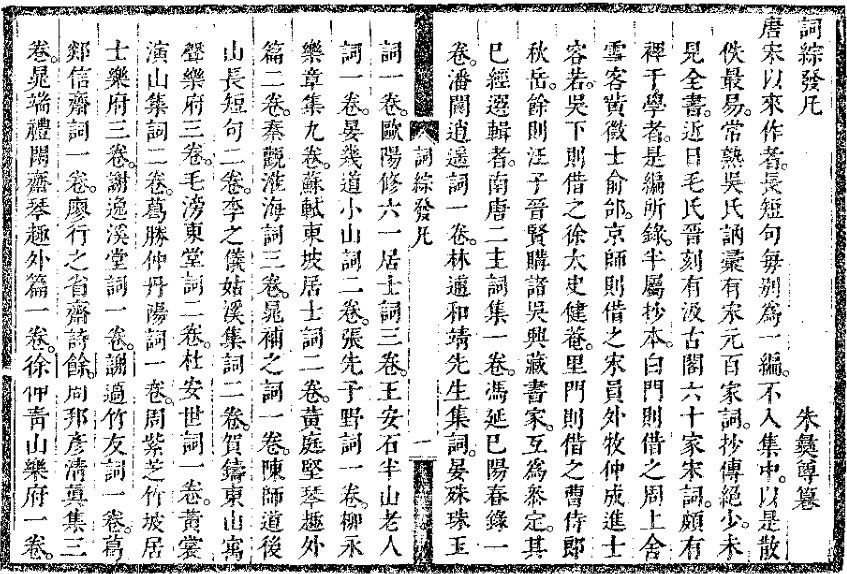 詞綜發凡
朱彝尊纂
唐宋以來作者。長短句每別為一編。不入集中。以是散
佚最易。常熟吳氏訥彙有宋元百家詞。抄傳絕少。未
見全書。近日毛氏晉刻有汲古閣六十家宋詞。頗有
裨于學者。是編所錄。半屬抄本。白門則借之周上舍
雪客黃徵士俞邰。京師則借之宋員外牧仲成進士
容若。吳下則借之徐太史健菴。里門則借之曹侍郎
秋岳。餘則汪子晉賢購諸吳興藏書家。互為叅定。其
已經選輯者。南唐二主詞集一卷。馮延巳陽春錄一
卷。潘閬逍遥詞一卷。林逋和靖先生集詞。晏殊珠玉
詞綜發凡
一
詞一卷。歐陽修六一居士詞三卷。王安石半山老人
詞一卷。晏幾道小山詞二卷。張先子野詞一卷。柳永
樂章集九卷。蘇軾東坡居士詞二卷。黃庭堅琴趣外
篇二卷。秦觀淮海詞三卷。晁補之詞一卷。陳師道後
山長短句二卷。李之儀姑溪集詞二卷。賀鑄東山寓
聲樂府三卷。毛滂東堂詞二卷。杜安世詞一卷。黃裳
演山集詞二卷。葛勝仲丹陽詞一卷。周紫芝竹坡居
士樂府三卷。謝逸溪堂詞一卷。謝薖竹友詞一卷。葛
郯信齋詞一卷。廖行之省齋詩餘。周邦彥清真集三
卷。晁端禮閑齋琴趣外篇一卷。徐伸青山樂府一卷。